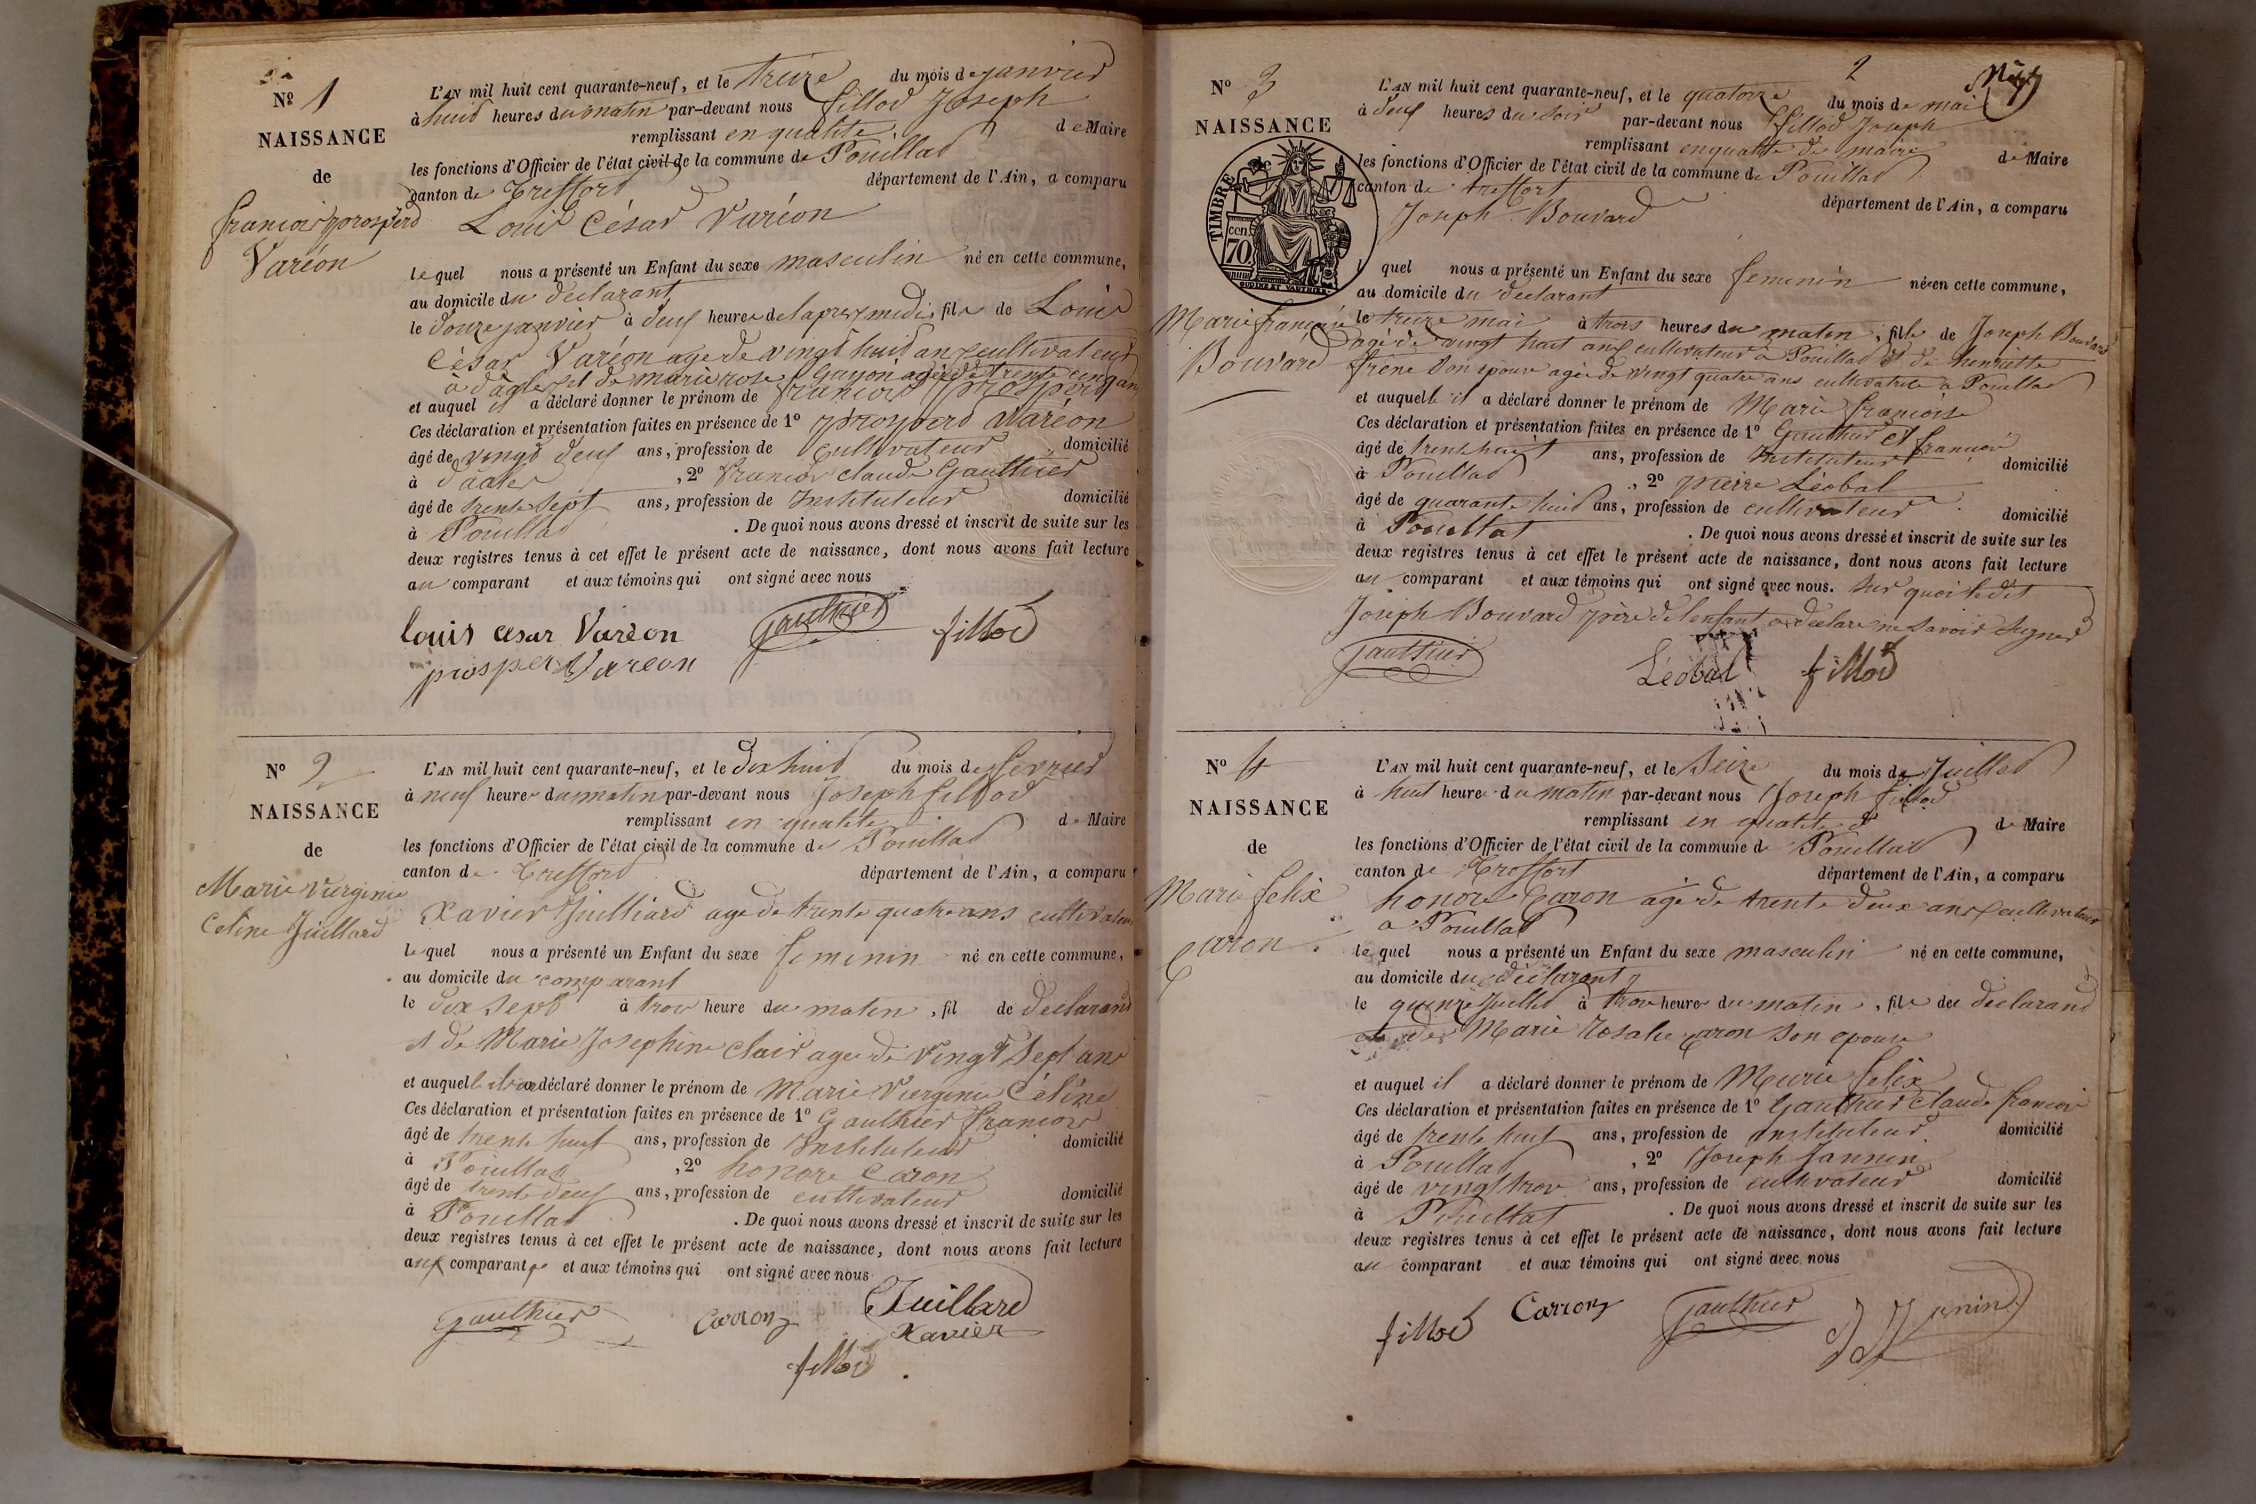 Nº 1
NAISSANCE
de
françois prosperd
Varéon
L'AN mil huit cent quarante-neuf, et le treize du mois de janvier
à huid heures du matin par-devant nous fillod Joseph
remplissant en qualité de Maire
les fonctions d'Officier de l'état civil de la commune de Pouillad
canton de Treffort département de l'Ain, a comparu
Louis César Varéon
lequel nous a présenté un Enfant du sexe masculin né en cette commune,
au domicile du déclarant
le douze janvier à deuf heures de l'apres midi, fils de Louis
César Varéon age de vingt huid ans cultivateur
et de marie rose Gayon agée de trente cinq ans
et auquel il a déclaré donner le prénom de françois prosperd
Ces déclaration et présentation faites en présence de 1º prosperd Varéon
âgé de vingt deuf ans, profession de cultivateur domicilié
à , 2º francois claude Gauthier
âgé de trente sept ans, profession de Instituteur domicilié
à Pouillad . De quoi nous avons dressé et inscrit de suite sur les
deux registres tenus à cet effet le présent acte de naissance, dont nous avons fait lecture
au comparant et aux témoins qui ont signé avec nous
louis cesar Varéon gauthier fillod
prosper Vareon
Nº 2
NAISSANCE
de
Marie Viergenie
Celine Juillard
L'AN mil huit cent quarante-neuf, et le dix huid du mois de fevrier
à neuf heures du matin par-devant nous Joseph fillod
remplissant en qualité de Maire
les fonctions d'Officier de l'état civil de la commune de Pouillad
canton de Trefford département de l'Ain, a comparu
Xavier Juilliard age de trente quatre ans cultivateur
lequel nous a présenté un Enfant du sexe feminin né en cette commune,
au domicile du comparant
le dix sept à trois heure du matin, fil de declarand
et de Marie Josephine Clair agee de vingt sept ans
et auquel a déclaré donner le prénom de Marie Viergenie Céline
Ces déclaration et présentation faites en présence de 1º Gauthier francois
âgé de trente huit ans, profession de Instituteur domicilié
à Pouillad , 2º honore Caron
âgé de trente deuf ans, profession de cultivateur domicilié
à Pouillad . De quoi nous avons dressé et inscrit de suite sur les
deux registres tenus à cet effet le présent acte de naissance, dont nous avons fait lecture
aux comparant et aux témoins qui ont signé avec nous
gauthier Carron Juillard
Xavier
fillod
2
Nº 3
NAISSANCE
de
TIMBRE
cen.
70
Marie françoise
Bouvard
L'AN mil huit cent quarante-neuf, et le quatorze du mois de mai
à deuf heures du soir par-devant nous fillod Joseph
remplissant en qualité de maire de Maire
les fonctions d'Officier de l'état civil de la commune de Pouillad
canton de treffort département de l'Ain, a comparu
Joseph Bouvard
quel nous a présenté un Enfant du sexe femenin née en cette commune,
au domicile du declarant
le treize mai à trois heures du matin, fille de Joseph Bouvard
agé de vingt huit ans cultivateur à Pouillad et de henriette
frène son epouse agée de vingt quatre ans cultivatrice a Pouillad
et auquelle il a déclaré donner le prénom de Marie françoise
Ces déclaration et présentation faites en présence de 1º Gauthier francois
âgé de trente huit ans, profession de Instituteur domicilié
à Pouillad , 2º pierre Léobal
âgé de quarante huid ans, profession de cultivateur domicilié
à Pouillat . De quoi nous avons dressé et inscrit de suite sur les
deux registres tenus à cet effet le présent acte de naissance, dont nous avons fait lecture
au comparant et aux témoins qui ont signé avec nous. sur quoi ledit
Joseph Bouvard père de lenfant a declare ne savoir signer
gauthier Léobal fillod
Nº 4
NAISSANCE
de
Marie felix
Caron
L'AN mil huit cent quarante-neuf, et le Seize du mois de Juillet
à huit heures du matin par-devant nous Joseph fillod
remplissant en qualité de Maire
les fonctions d'Officier de l'état civil de la commune de Pouillad
canton de Treffort département de l'Ain, a comparu
honore Caron agé de trente deux ans cultivateur
a Pouillad
lequel nous a présenté un Enfant du sexe masculin né en cette commune,
au domicile du déclarant
le quinze Juillet à trois heures du matin, fils du declarand
et de Marie Rosalie Caron son epouse
et auquel il a déclaré donner le prénom de Marie felix
Ces déclaration et présentation faites en présence de 1º Gauthier Claude francois
âgé de trente huit ans, profession de instituteur domicilié
à Pouillad , 2º Joseph Jannin
âgé de vingt trois ans, profession de cultivateur domicilié
à Pouillat . De quoi nous avons dressé et inscrit de suite sur les
deux registres tenus à cet effet le présent acte de naissance, dont nous avons fait lecture
au comparant et aux témoins qui ont signé avec nous
fillod Carron gauthier